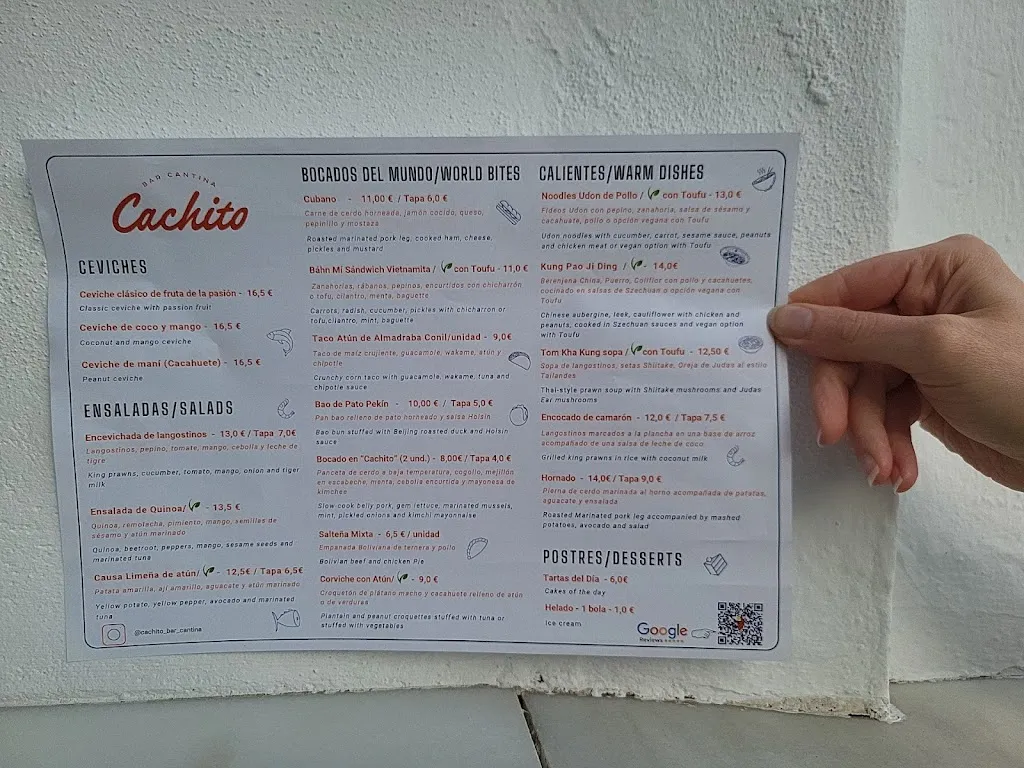 BAR CANTINA
Cachito
CEVICHES
Ceviche clásico de fruta de la pasión - 16,5 €
Classic ceviche with passion fruit
Ceviche de coco y mango - 16,5 €
Coconut and mango ceviche
Ceviche de maní (Cacahuete) - 16,5 €
Peanut ceviche
ENSALADAS/SALADS
Encevichada de langostinos - 13,0 € / Tapa 7,0€
Langostinos, pepino, tomate, mango, cebolla y leche de
tigre
King prawns, cucumber, tomato, mango, onion and tiger
milk
Ensalada de Quinoa/ - 13,5 €
Quinoa, remolacha, pimiento, mango, semillas de
sésamo y atún marinado
Quinoa, beetroot, peppers, mango, sesame seeds and
marinated tuna
Causa Limeña de atún/ - 12,5€ / Tapa 6,5€
Patata amarilla, ají amarillo, aguacate y atún marinado
Yellow potato, yellow pepper, avocado and marinated
tuna
@cachito_bar_cantina
BOCADOS DEL MUNDO/WORLD BITES
Cubano - 11,00 € / Tapa 6,0 €
Carne de cerdo horneada, jamón cocido, queso,
pepinillo y mostaza
Roasted marinated pork leg, cooked ham, cheese,
pickles and mustard
Bánh Mì Sándwich Vietnamita / con Toufu - 11,0 €
Zanahorias, rábanos, pepinos, encurtidos con chicharrón
o tofu, cilantro, menta, baguette
Carrots, radish, cucumber, pickles with chicharron or
tofu,cilantro, mint, baguette
Taco Atún de Almadraba Conil/unidad - 9,0€
Taco de maíz crujiente, guacamole, wakame, atún y
chipotle
Crunchy corn taco with guacamole, wakame, tuna and
chipotle sauce
Bao de Pato Pekín - 10,00 € / Tapa 5,0 €
Pan bao relleno de pato horneado y salsa Hoisin
Bao bun stuffed with Beijing roasted duck and Hoisin
sauce
Bocado en "Cachito" (2 und.) - 8,00€ / Tapa 4,0 €
Panceta de cerdo a baja temperatura, cogollo, mejillón
en escabeche, menta, cebolla encurtida y mayonesa de
kimchee
Slow cook belly pork, gem lettuce, marinated mussels,
mint, pickled onions and kimchi mayonnaise
Salteña Mixta - 6,5 € / unidad
Empanada Boliviana de ternera y pollo
Bolivian beef and chicken Pie
Corviche con Atún/ - 9,0 €
Croquetón de plátano macho y cacahuete relleno de atún
o de verduras
Plantain and peanut croquettes stuffed with tuna or
stuffed with vegetables
CALIENTES/WARM DISHES
Noodles Udon de Pollo / con Toufu - 13,0 €
Fideos Udon con pepino, zanahoria, salsa de sésamo y
cacahuate, pollo o opción vegana con Toufu
Udon noodles with cucumber, carrot, sesame sauce, peanuts
and chicken meat or vegan option with Toufu
Kung Pao Ji Ding / - 14,0€
Berenjena China, Puerro, Coliflor con pollo y cacahuetes,
cocinado en salsas de Szechuan o opción vegana con
Toufu
Chinese aubergine, leek, cauliflower with chicken and
peanuts, cooked in Szechuan sauces and vegan option
with Toufu
Tom Kha Kung sopa / con Toufu - 12,50 €
Sopa de langostinos, setas Shiitake, Oreja de Judas al estilo
Tailandes
Thai-style prawn soup with Shiitake mushrooms and Judas
Ear mushrooms
Encocado de camarón - 12,0 € / Tapa 7,5 €
Langostinos marcados a la plancha en una base de arroz
acompañado de una salsa de leche de coco
Grilled king prawns in rice with coconut milk
Hornado - 14,0€ / Tapa 9,0 €
Pierna de cerdo marinada al horno acompañada de patatas,
aguacate y ensalada
Roasted Marinated pork leg accompanied by mashed
potatoes, avocado and salad
POSTRES/DESSERTS
Tartas del Día - 6,0€
Cakes of the day
Helado - 1 bola - 1,0 €
Ice cream
Google
Reviews